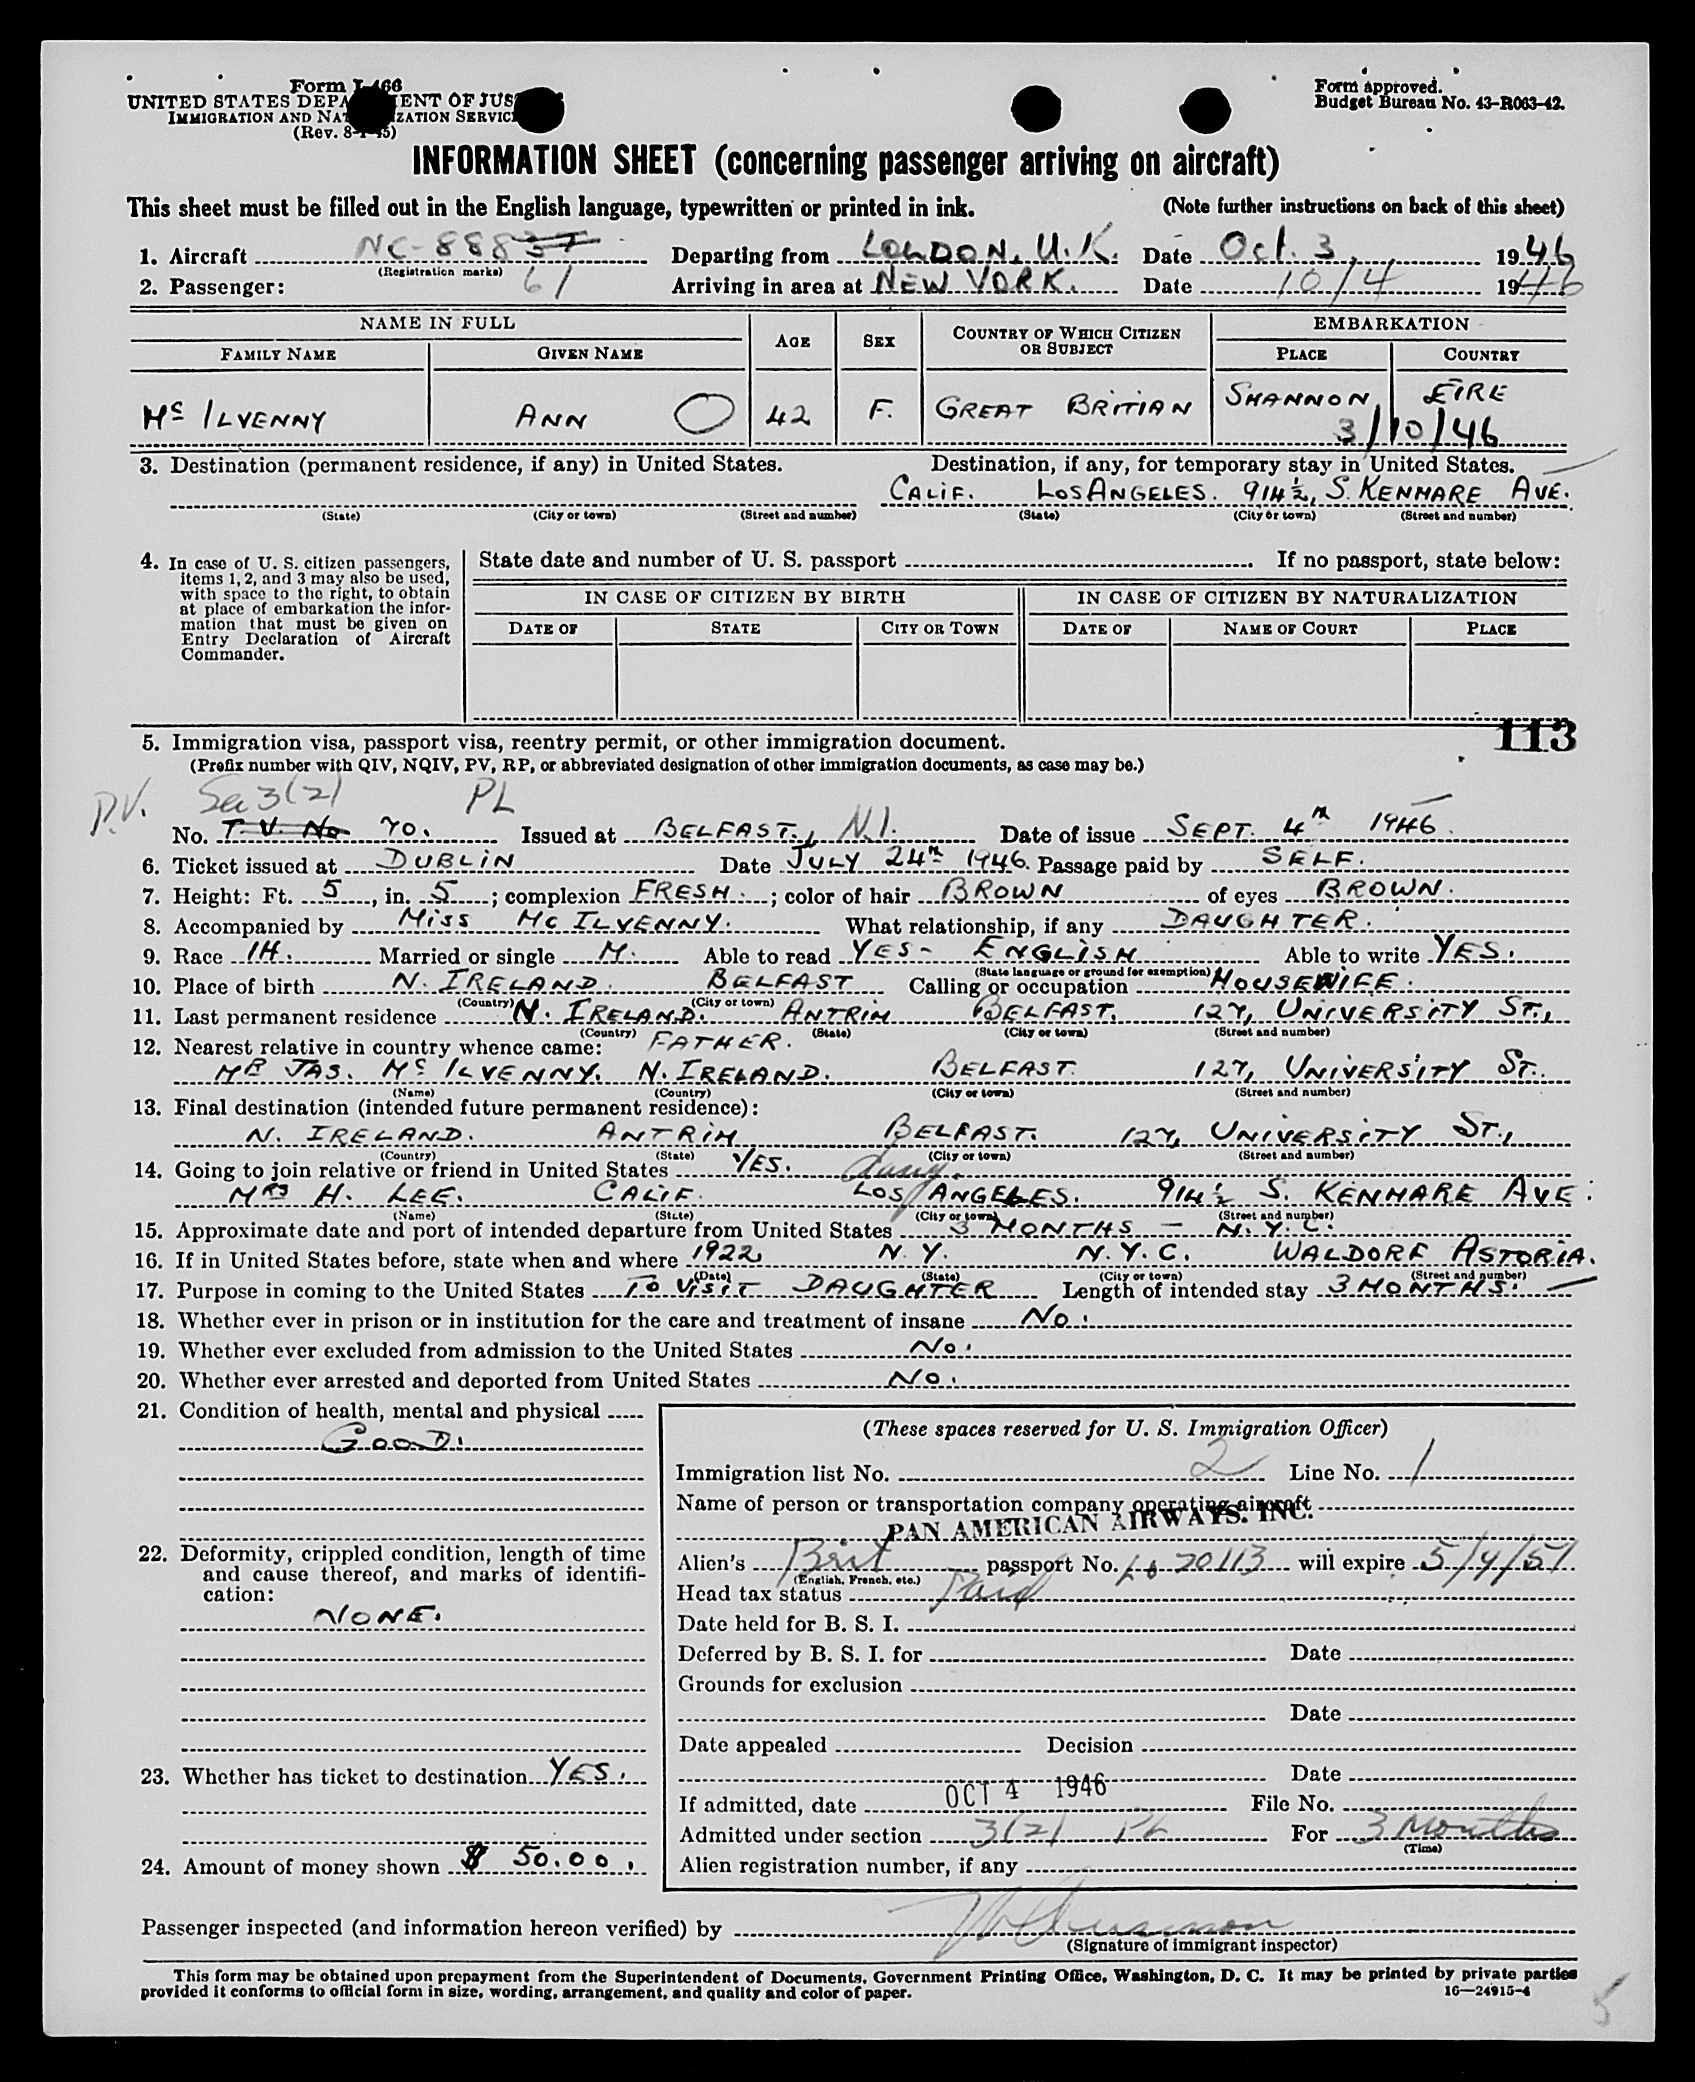 Form I-466
UNITED STATES DEPARTMENT OF JUSTICE
IMMIGRATION AND NATURALIZATION SERVICE
(Rev. 8-1-45)
Form approved.
Budget Bureau No. 43-R063-42.
INFORMATION SHEET (concerning passenger arriving on aircraft)
This sheet must be filled out in the English language, typewritten or printed in ink. (Note further instructions on back of this sheet)
1. Aircraft NC-88837 Departing from LONDON, U.K. Date Oct. 3, 1946
(Registration marks) 61
2. Passenger: Arriving in area at NEW YORK. Date 10/4 1946
NAME IN FULL AGE SEX COUNTRY OF WHICH CITIZEN OR SUBJECT EMBARKATION
FAMILY NAME GIVEN NAME PLACE COUNTRY
Mc ILVENNY ANN 42 F. GREAT BRITIAN SHANNON EIRE
3/10/46
3. Destination (permanent residence, if any) in United States. Destination, if any, for temporary stay in United States.
CALIF. LOS ANGELES. 914½, S. KENMARE AVE.
(State) (City or town) (Street and number) (State) (City or town) (Street and number)
4. In case of U. S. citizen passengers,
items 1, 2, and 3 may also be used,
with space to the right, to obtain
at place of embarkation the infor-
mation that must be given on
Entry Declaration of Aircraft
Commander.
State date and number of U. S. passport If no passport, state below:
IN CASE OF CITIZEN BY BIRTH IN CASE OF CITIZEN BY NATURALIZATION
DATE OF STATE CITY OR TOWN DATE OF NAME OF COURT PLACE
113
5. Immigration visa, passport visa, reentry permit, or other immigration document.
(Prefix number with QIV, NQIV, PV, RP, or abbreviated designation of other immigration documents, as case may be.)
P.V. Sec 3(2) PL
No. T.V. No 70. Issued at BELFAST., N.I. Date of issue SEPT. 4th 1946.
6. Ticket issued at DUBLIN Date JULY 24th 1946. Passage paid by SELF.
7. Height: Ft. 5, in. 5; complexion FRESH.; color of hair BROWN of eyes BROWN.
8. Accompanied by MISS MC ILVENNY. What relationship, if any DAUGHTER.
9. Race IH. Married or single M. Able to read YES- ENGLISH Able to write YES.
(State language or ground for exemption)
10. Place of birth N. IRELAND. BELFAST Calling or occupation HOUSEWIFE.
(Country) (City or town)
11. Last permanent residence N. IRELAND. ANTRIM BELFAST. 127, UNIVERSITY ST.,
(Country) (State) (City or town) (Street and number)
12. Nearest relative in country whence came: FATHER.
MR JAS. Mc ILVENNY. N. IRELAND. BELFAST. 127, UNIVERSITY ST.
(Name) (Country) (City or town) (Street and number)
13. Final destination (intended future permanent residence):
N. IRELAND. ANTRIM BELFAST. 127, UNIVERSITY ST.,
(Country) (State) (City or town) (Street and number)
14. Going to join relative or friend in United States YES.
MRS H. LEE. CALIF. LOS ANGELES. 914½ S. KENMARE AVE.
(Name) (State) (City or town) (Street and number)
15. Approximate date and port of intended departure from United States 3 MONTHS - N.Y.C.
16. If in United States before, state when and where 1922, N.Y. N.Y.C. WALDORF ASTORIA.
(Date) (State) (City or town) (Street and number)
17. Purpose in coming to the United States TO VISIT DAUGHTER Length of intended stay 3 MONTHS.
18. Whether ever in prison or in institution for the care and treatment of insane NO.
19. Whether ever excluded from admission to the United States NO.
20. Whether ever arrested and deported from United States NO.
21. Condition of health, mental and physical
GOOD.
22. Deformity, crippled condition, length of time
and cause thereof, and marks of identifi-
cation:
NONE.
23. Whether has ticket to destination YES.
24. Amount of money shown $ 50.00.
(These spaces reserved for U. S. Immigration Officer)
Immigration list No. 2 Line No. 1
Name of person or transportation company operating aircraft
PAN AMERICAN AIRWAYS. INC.
Alien's Brit passport No. 20113 will expire 5/4/51
(English, French, etc.)
Head tax status Paid
Date held for B. S. I.
Deferred by B. S. I. for Date
Grounds for exclusion
Date
Date appealed Decision
Date
If admitted, date OCT 4 1946 File No.
Admitted under section 3(2) PL For 3 Months
(Time)
Alien registration number, if any
Passenger inspected (and information hereon verified) by
(Signature of immigrant inspector)
This form may be obtained upon prepayment from the Superintendent of Documents, Government Printing Office, Washington, D. C. It may be printed by private parties
provided it conforms to official form in size, wording, arrangement, and quality and color of paper. 16—24915-4
5